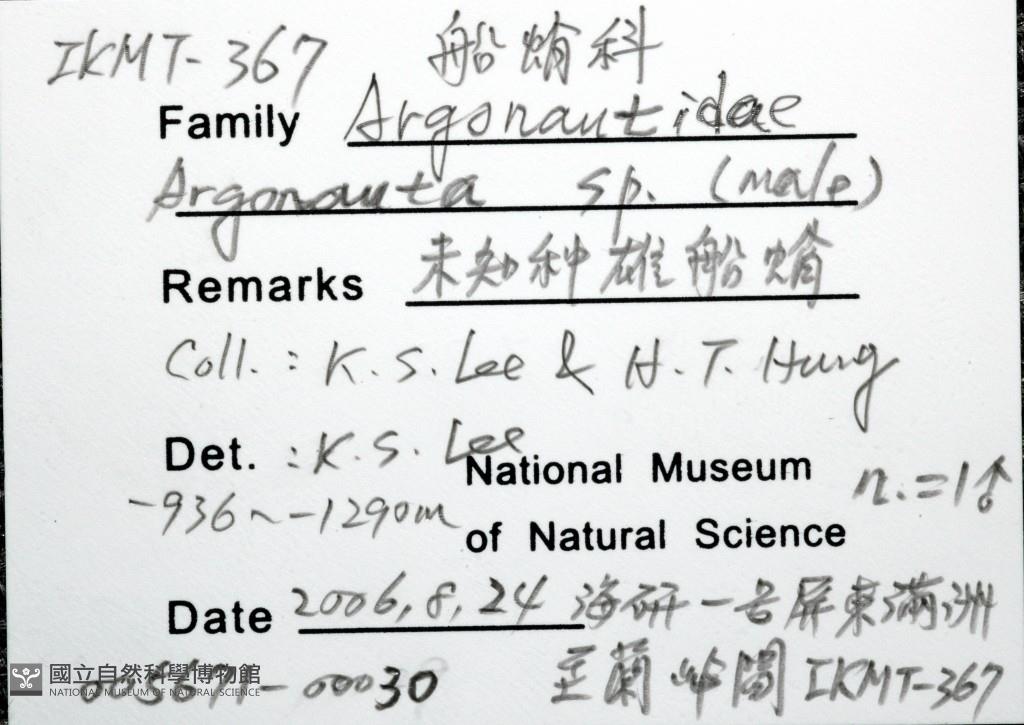 IKMT-367 船蛸科
Family Argonautidae
Argonauta sp. (male)
Remarks 未知种雄船蛸
Coll.: K.S. Lee & H.T. Hung
Det.: K.S. Lee
National Museum
n.=1♂
-936~-1290m
of Natural Science
Date 2006,8,24 海研一号屏東滿洲
至蘭屿間 IKMT-367
-00030
國立自然科學博物館
NATIONAL MUSEUM OF NATURAL SCIENCE